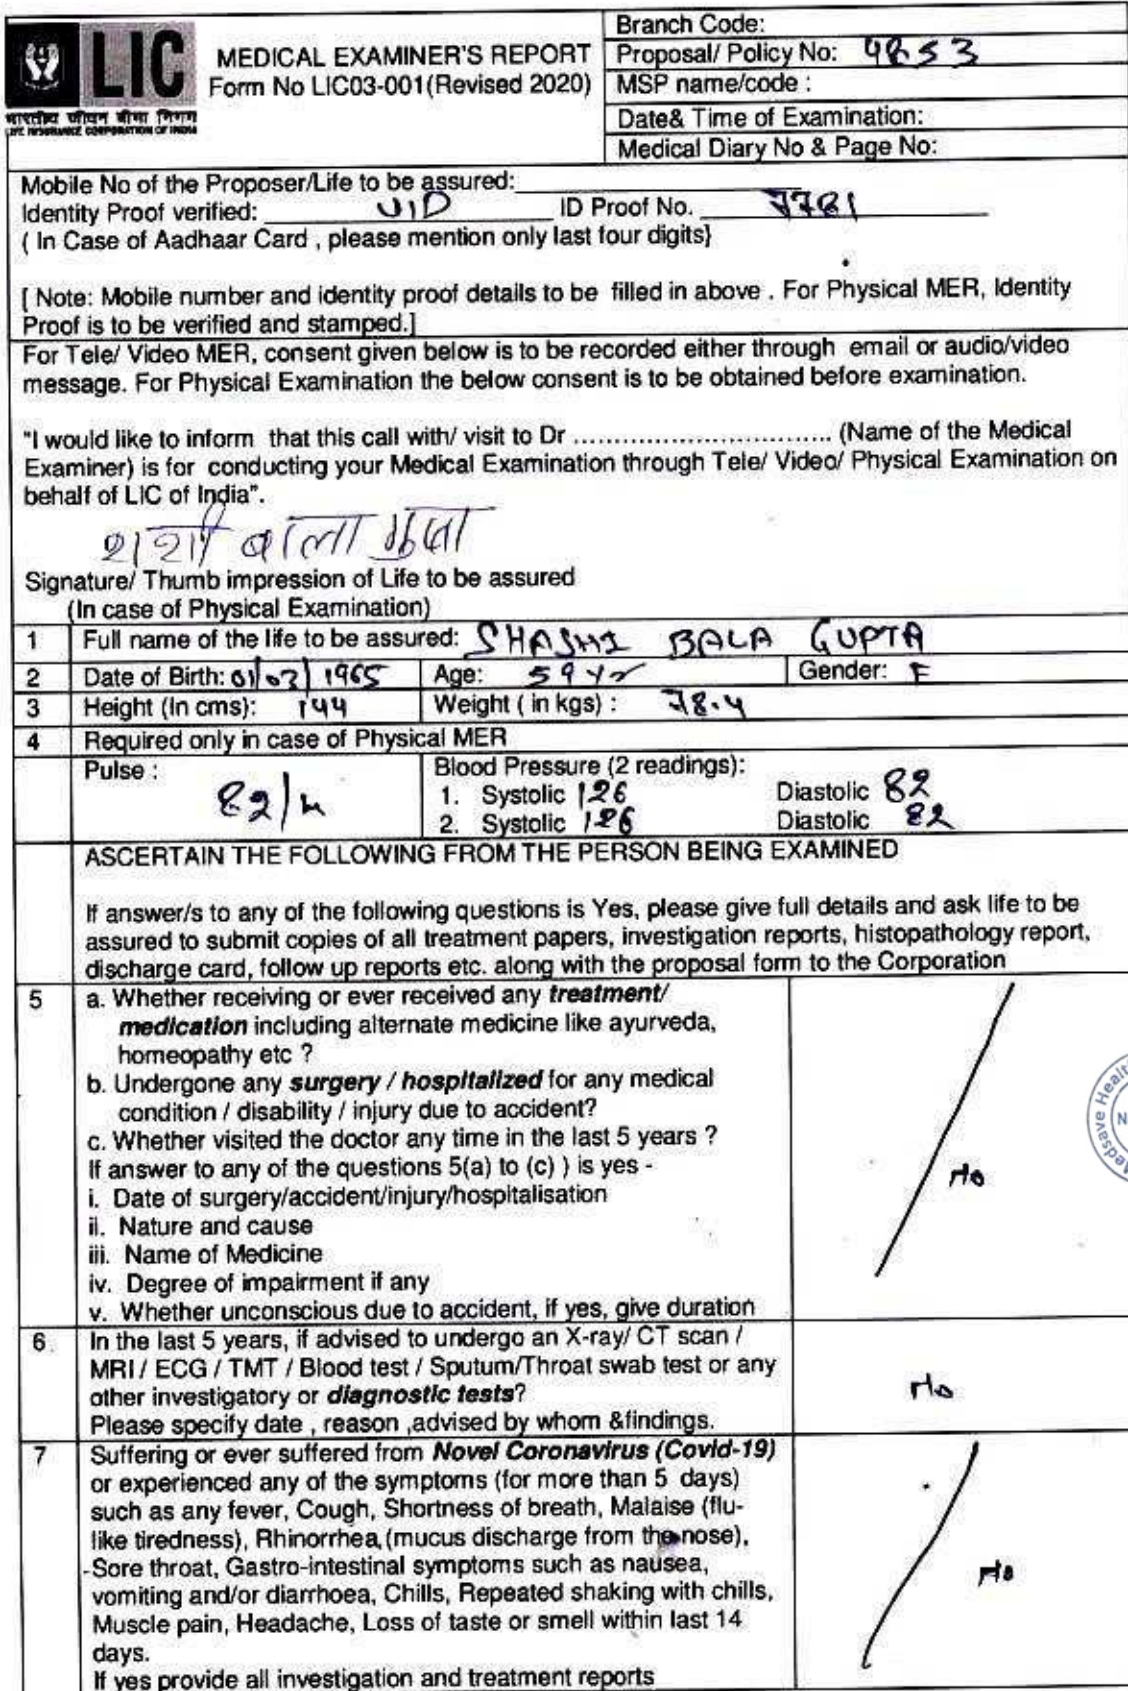 LIC
भारतीय जीवन बीमा निगम
LIFE INSURANCE CORPORATION OF INDIA
MEDICAL EXAMINER'S REPORT
Form No LIC03-001(Revised 2020)
Branch Code:
Proposal/ Policy No: 4853
MSP name/code :
Date& Time of Examination:
Medical Diary No & Page No:
Mobile No of the Proposer/Life to be assured:
Identity Proof verified: UID ID Proof No. 7781
( In Case of Aadhaar Card , please mention only last four digits}
[ Note: Mobile number and identity proof details to be filled in above . For Physical MER, Identity
Proof is to be verified and stamped.]
For Tele/ Video MER, consent given below is to be recorded either through email or audio/video
message. For Physical Examination the below consent is to be obtained before examination.
"I would like to inform that this call with/ visit to Dr ................................ (Name of the Medical
Examiner) is for conducting your Medical Examination through Tele/ Video/ Physical Examination on
behalf of LIC of India".
शशी बाला गुप्ता
Signature/ Thumb impression of Life to be assured
(In case of Physical Examination)
1 Full name of the life to be assured: SHASHI BALA GUPTA
2 Date of Birth: 01/07/1965 Age: 59 Yr Gender: F
3 Height (In cms): 144 Weight ( in kgs) : 78.4
4 Required only in case of Physical MER
Pulse : 82/m Blood Pressure (2 readings):
1. Systolic 126 Diastolic 82
2. Systolic 126 Diastolic 82
ASCERTAIN THE FOLLOWING FROM THE PERSON BEING EXAMINED
If answer/s to any of the following questions is Yes, please give full details and ask life to be
assured to submit copies of all treatment papers, investigation reports, histopathology report,
discharge card, follow up reports etc. along with the proposal form to the Corporation
5 a. Whether receiving or ever received any treatment/
medication including alternate medicine like ayurveda,
homeopathy etc ?
b. Undergone any surgery / hospitalized for any medical
condition / disability / injury due to accident?
c. Whether visited the doctor any time in the last 5 years ?
If answer to any of the questions 5(a) to (c) ) is yes -
i. Date of surgery/accident/injury/hospitalisation
ii. Nature and cause
iii. Name of Medicine
iv. Degree of impairment if any
v. Whether unconscious due to accident, if yes, give duration
No
Medsave Healt
6. In the last 5 years, if advised to undergo an X-ray/ CT scan /
MRI / ECG / TMT / Blood test / Sputum/Throat swab test or any
other investigatory or diagnostic tests?
Please specify date , reason ,advised by whom &findings.
No
7 Suffering or ever suffered from Novel Coronavirus (Covid-19)
or experienced any of the symptoms (for more than 5 days)
such as any fever, Cough, Shortness of breath, Malaise (flu-
like tiredness), Rhinorrhea (mucus discharge from the nose),
Sore throat, Gastro-intestinal symptoms such as nausea,
vomiting and/or diarrhoea, Chills, Repeated shaking with chills,
Muscle pain, Headache, Loss of taste or smell within last 14
days.
If yes provide all investigation and treatment reports
No